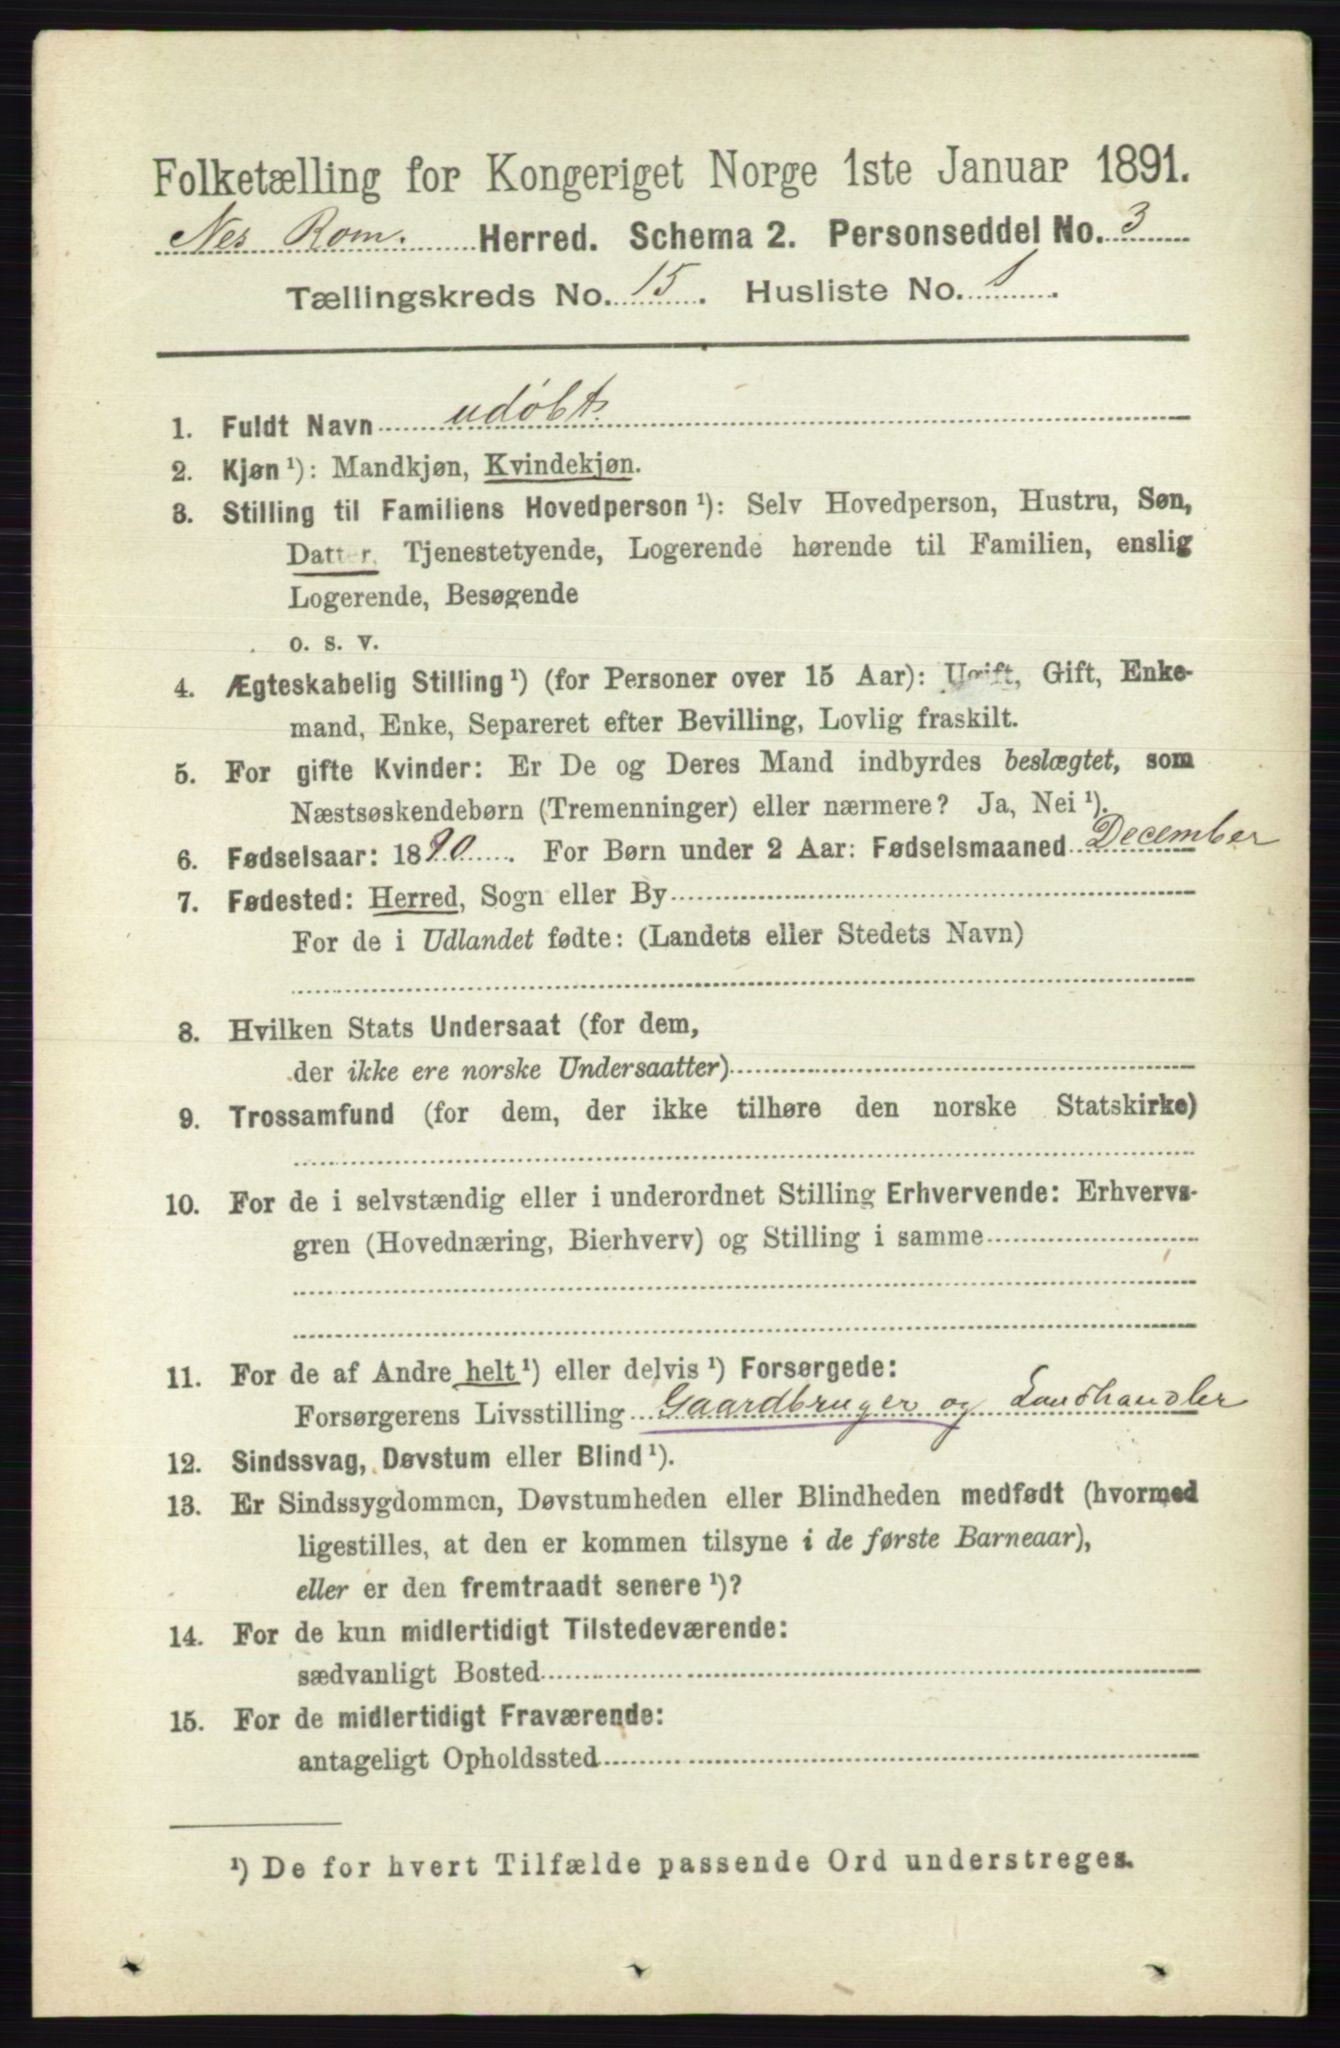 Folketælling for Kongeriget Norge 1ste Januar 1891.
Nes Rom. Herred. Schema 2. Personseddel No. 3
Tællingskreds No. 15. Husliste No. 1.
1. Fuldt Navn udøbt.
2. Kjøn ¹): Mandkjøn, Kvindekjøn.
3. Stilling til Familiens Hovedperson ¹): Selv Hovedperson, Hustru, Søn,
Datter, Tjenestetyende, Logerende hørende til Familien, enslig
Logerende, Besøgende
o. s. v.
4. Ægteskabelig Stilling ¹) (for Personer over 15 Aar): Ugift, Gift, Enke-
mand, Enke, Separeret efter Bevilling, Lovlig fraskilt.
5. For gifte Kvinder: Er De og Deres Mand indbyrdes beslægtet, som
Næstsøskendebørn (Tremenninger) eller nærmere? Ja, Nei ¹).
6. Fødselsaar: 1890. For Børn under 2 Aar: Fødselsmaaned December
7. Fødested: Herred, Sogn eller By
For de i Udlandet fødte: (Landets eller Stedets Navn)
8. Hvilken Stats Undersaat (for dem,
der ikke ere norske Undersaatter)
9. Trossamfund (for dem, der ikke tilhøre den norske Statskirke)
10. For de i selvstændig eller i underordnet Stilling Erhvervende: Erhvervs-
gren (Hovednæring, Bierhverv) og Stilling i samme
11. For de af Andre helt ¹) eller delvis ¹) Forsørgede:
Forsørgerens Livsstilling Gaardbruger og Landhandler
12. Sindssvag, Døvstum eller Blind ¹).
13. Er Sindssygdommen, Døvstumheden eller Blindheden medfødt (hvormed
ligestilles, at den er kommen tilsyne i de første Barneaar),
eller er den fremtraadt senere ¹)?
14. For de kun midlertidigt Tilstedeværende:
sædvanligt Bosted
15. For de midlertidigt Fraværende:
antageligt Opholdssted
¹) De for hvert Tilfælde passende Ord understreges.